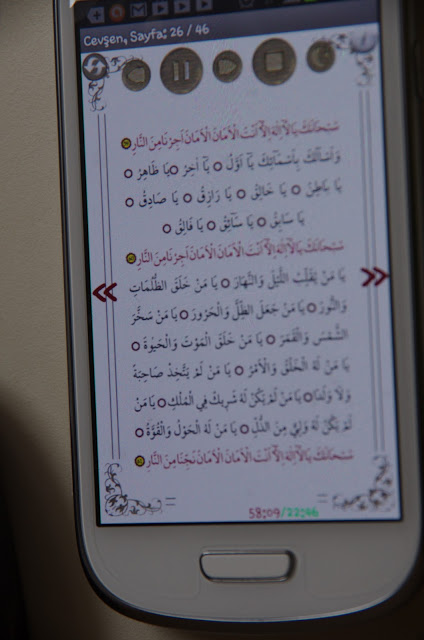 Cevşen, Sayfa: 26 / 46
سُبْحَانَكَ يَا لَآ اِلٰهَ اِلَّآ اَنْتَ الْاَمَانَ الْاَمَانَ اَجِرْنَا مِنَ النَّارِ
وَاَسْاَلُكَ بِاَسْمَآئِكَ يَآ اَوَّلُ يَآ اٰخِرُ يَا ظَاهِرُ
يَا بَاطِنُ يَا خَالِقُ يَا رَازِقُ يَا صَادِقُ
يَا سَابِقُ يَا سَآئِقُ يَا فَالِقُ
سُبْحَانَكَ يَا لَآ اِلٰهَ اِلَّآ اَنْتَ الْاَمَانَ الْاَمَانَ اَجِرْنَا مِنَ النَّارِ
يَا مَنْ يُقَلِّبُ اللَّيْلَ وَالنَّهَارَ يَا مَنْ خَلَقَ الظُّلُمَاتِ
وَالنُّورَ يَا مَنْ جَعَلَ الظِّلَّ وَالْحَرُورَ يَا مَنْ سَخَّرَ
الشَّمْسَ وَالْقَمَرَ يَا مَنْ خَلَقَ الْمَوْتَ وَالْحَيٰوةَ
يَا مَنْ لَهُ الْخَلْقُ وَالْاَمْرُ يَا مَنْ لَمْ يَتَّخِذْ صَاحِبَةً
وَلَا وَلَدًا يَا مَنْ لَمْ يَكُنْ لَهُ شَرِيكٌ فِي الْمُلْكِ يَا مَنْ
لَمْ يَكُنْ لَهُ وَلِيٌّ مِنَ الذُّلِّ يَا مَنْ لَهُ الْحَوْلُ وَالْقُوَّةُ
سُبْحَانَكَ يَا لَآ اِلٰهَ اِلَّآ اَنْتَ الْاَمَانَ الْاَمَانَ نَجِّنَا مِنَ النَّارِ
58:09/22:46